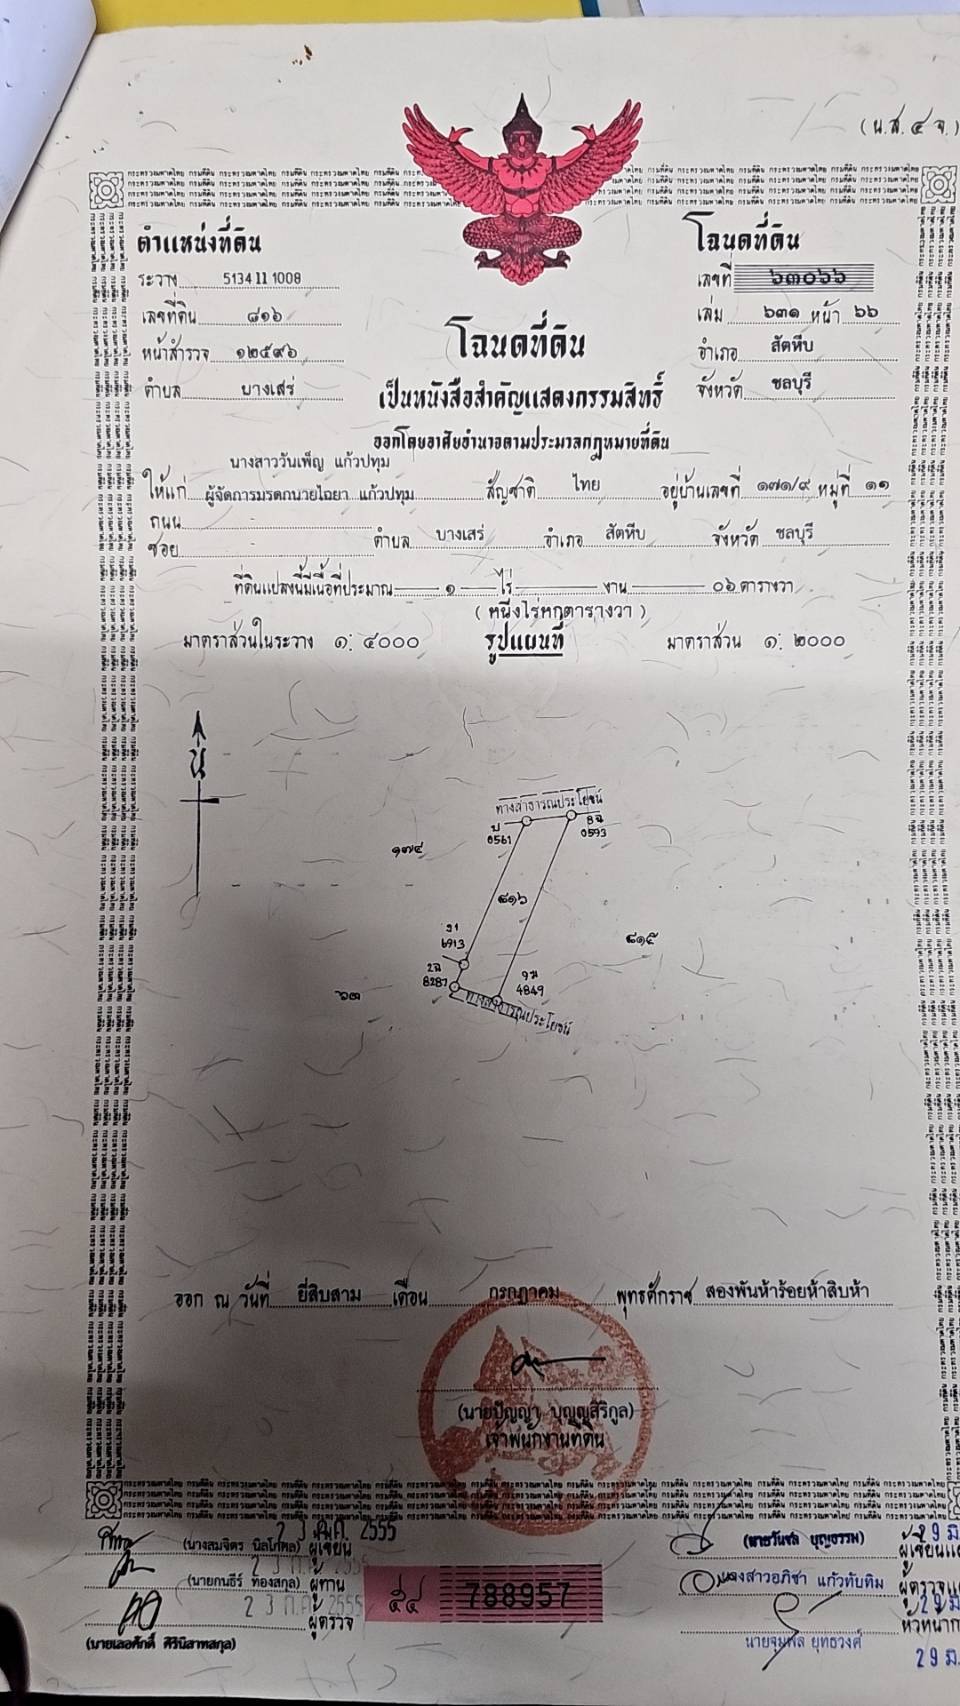 (น.ส. ๔ จ.)
ตำแหน่งที่ดิน
ระวาง 5134 II 1008
เลขที่ดิน ๘๑๖
หน้าสำรวจ ๑๒๕๙๖
ตำบล บางเสร่
โฉนดที่ดิน
เลขที่ ๖๓๐๖๖
เล่ม ๖๓๑ หน้า ๖๖
อำเภอ สัตหีบ
จังหวัด ชลบุรี
โฉนดที่ดิน
เป็นหนังสือสำคัญแสดงกรรมสิทธิ์
ออกโดยอาศัยอำนาจตามประมวลกฎหมายที่ดิน
นางสาววันเพ็ญ แก้วปทุม
ให้แก่ ผู้จัดการมรดกนายไฉยา แก้วปทุม สัญชาติ ไทย อยู่บ้านเลขที่ ๑๗๑/๙ หมู่ที่ ๑๑
ถนน
ซอย ตำบล บางเสร่ อำเภอ สัตหีบ จังหวัด ชลบุรี
ที่ดินแปลงนี้มีเนื้อที่ประมาณ ๑ ไร่ งาน ๐๖ ตารางวา
( หนึ่งไร่หกตารางวา )
มาตราส่วนในระวาง ๑: ๔๐๐๐ รูปแผนที่ มาตราส่วน ๑: ๒๐๐๐
น
ทางสาธารณประโยชน์
0561
8ฉ
0593
๑๗๔
๘๑๖
6913
๘๑๕
2ฉ
8287
4849
๖๓
ทางสาธารณประโยชน์
ออก ณ วันที่ ยี่สิบสาม เดือน กรกฎาคม พุทธศักราช สองพันห้าร้อยห้าสิบห้า
(นายปัญญา บุญญสิริกูล)
เจ้าพนักงานที่ดิน
2 3 ก.ค. 2555
(นางสมจิตร นิลโกศล) ผู้เขียน
2 3 ก.ค. 2555
(นายกนธีร์ ทองสกุล) ผู้ทาน
2 3 ก.ค. 2555
ผู้ตรวจ
(นายเลอศักดิ์ ศิรินิสาทสกุล)
๕๔ 788957
29 มิ
(นายวันชล บุญธรรม) ผู้เขียนแ
นางสาวอภิชา แก้วทับทิม ผู้ตรวจแ
29 มิ
หัวหน้าก
นายจุมพล ยุทธวงศ์
29 มิ.